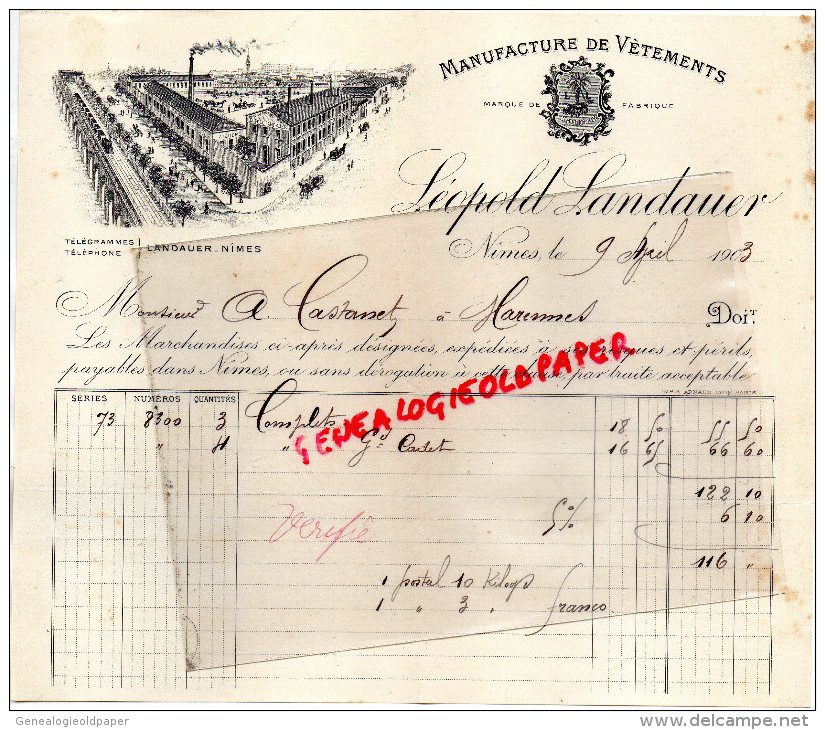 MANUFACTURE DE VÊTEMENTS
MARQUE DE FABRIQUE
Léopold Landauer
TÉLÉGRAMMES
TÉLÉPHONE
LANDAUER_NIMES
Nîmes, le 9 April 1903
Monsieur A. Castanet à Marennes Doit
Les Marchandises ci-après désignées, expédiées à ses risques et périls,
payables dans Nîmes, ou sans dérogation à cette clause, par traite acceptable
IMP. ARNAUD LYON-PARIS
SÉRIES NUMÉROS QUANTITÉS
73 8300 3 Complets 18 50 55 50
" 4 " Gd Cadet 16 65 66 60
122 10
Vérifié 5% 6 10
116 "
1 postal 10 Kilogs
1 " 3 " franco
GENEALOGIEOLDPAPER
Genealogieoldpaper
delcampe.net